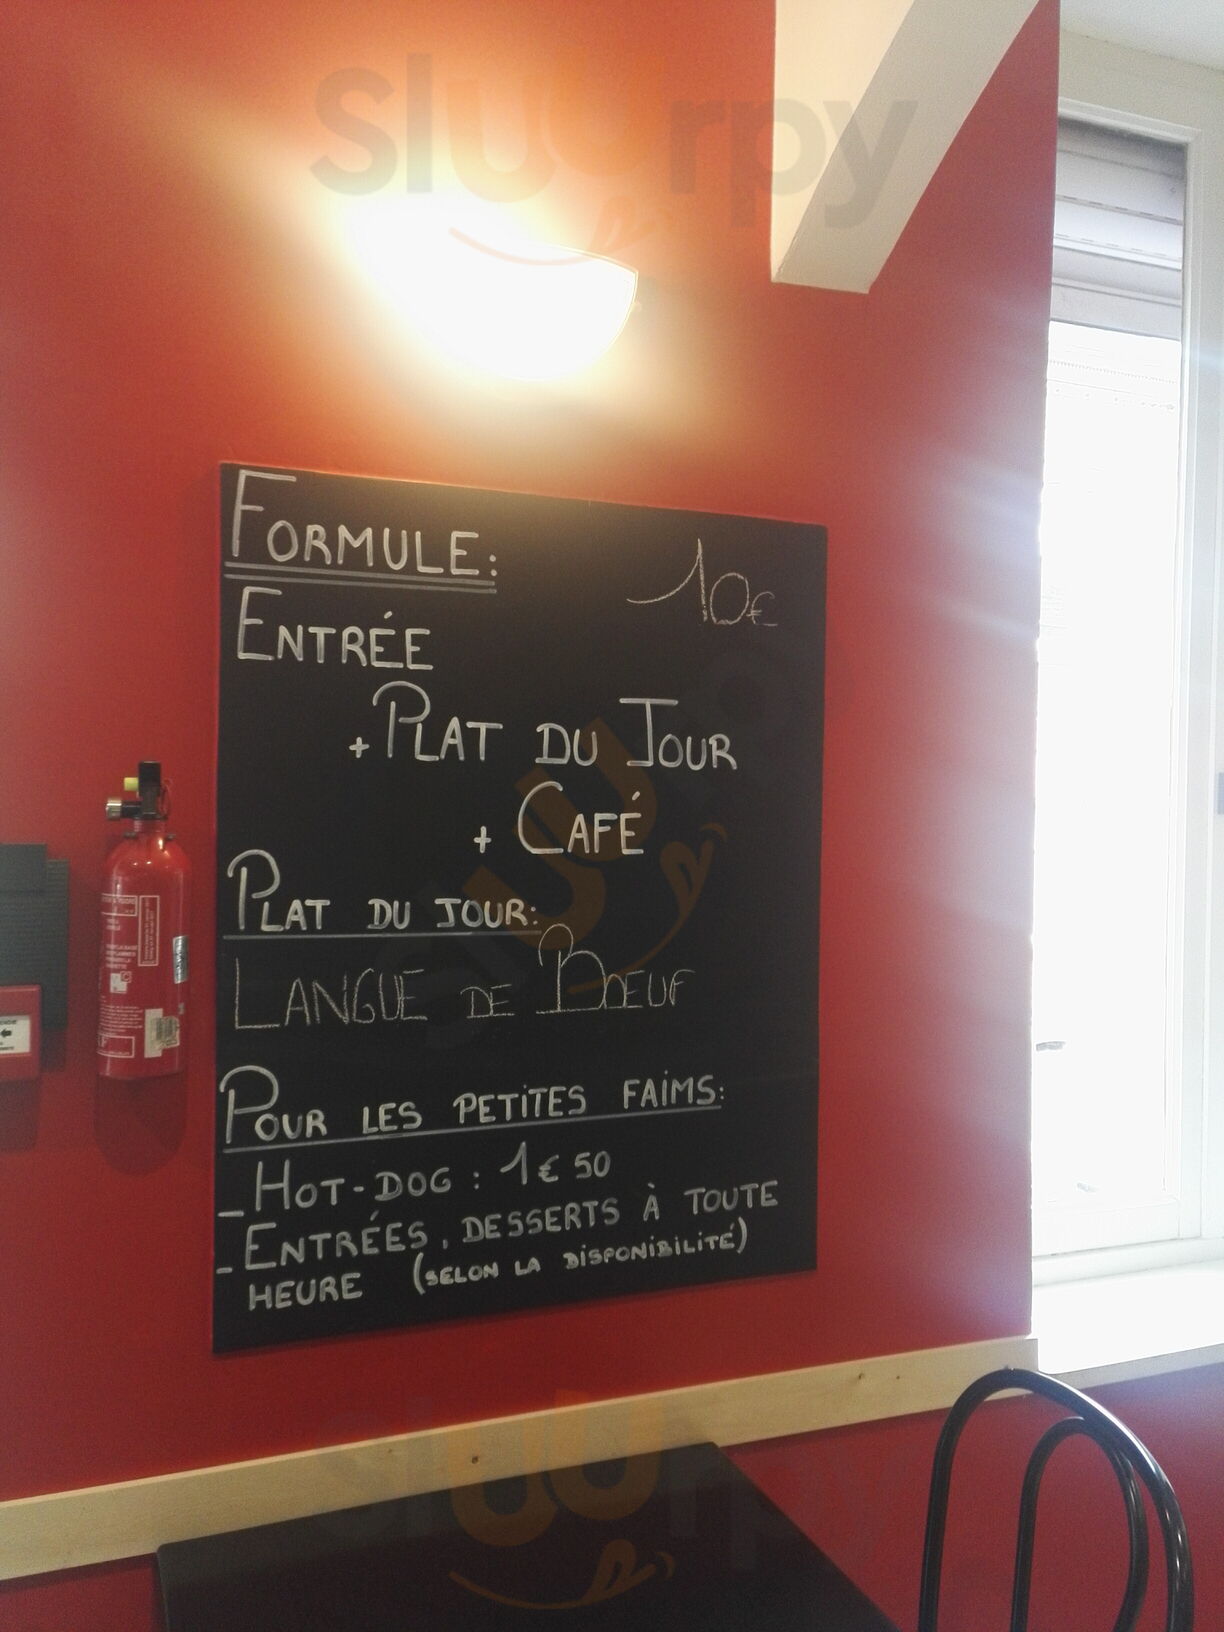 Sluurpy
FORMULE:
10€
ENTRÉE
+ PLAT DU JOUR
+ CAFÉ
PLAT DU JOUR:
LANGUE DE BOEUF
POUR LES PETITES FAIMS:
_ HOT-DOG : 1€50
_ ENTRÉES, DESSERTS À TOUTE
HEURE (SELON LA DISPONIBILITÉ)
sluurpy
sluurpy